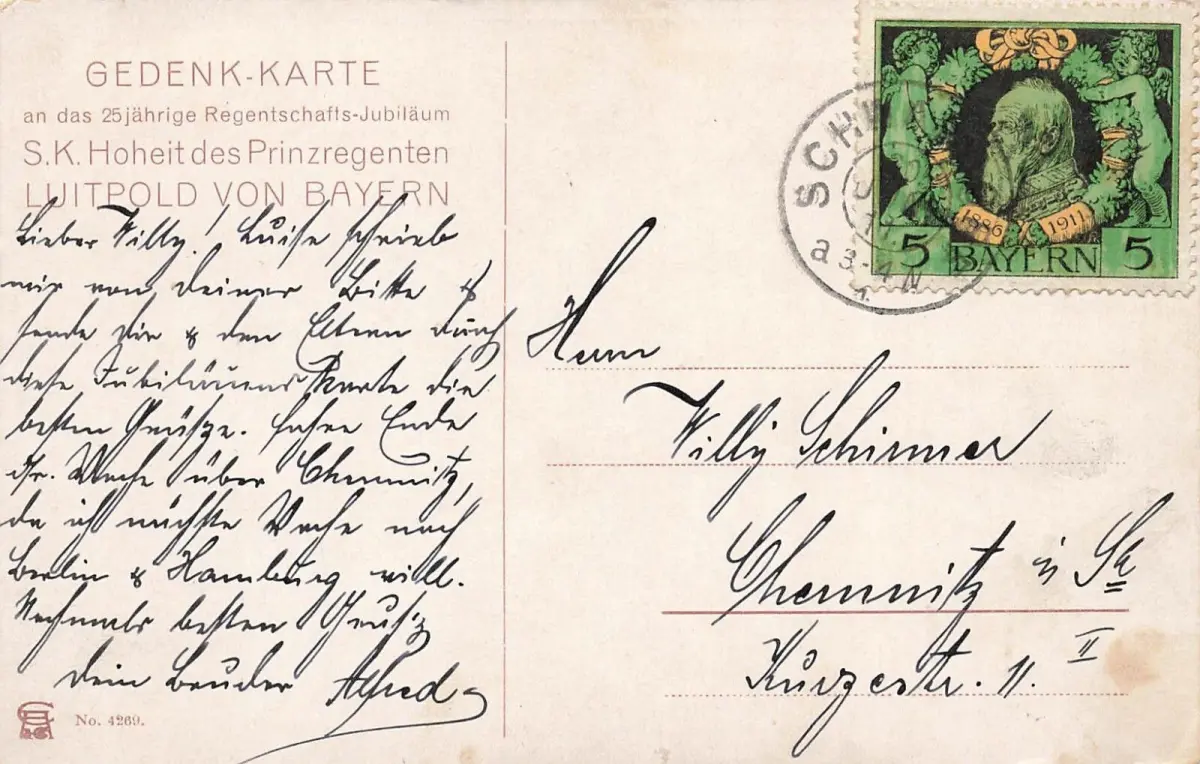 GEDENK-KARTE
an das 25jährige Regentschafts-Jubiläum
S.K. Hoheit des Prinzregenten
LUITPOLD VON BAYERN
Lieber Willy! Luise schrieb
mir von Deiner Bitte &
sende Dir & den Eltern durch
diese Jubiläums Karte die
besten Grüsse. Fahre Ende
ds. Woche über Chemnitz,
da ich nächste Woche nach
Berlin & Hamburg will.
Nochmals besten Gruss
Dein Bruder Alfred
No. 4269.
SCHW
a 3-4 N
1886 1911
5 BAYERN 5
Herrn
Willy Schirmer
Chemnitz i/ Sa
Kurzestr. 11. II